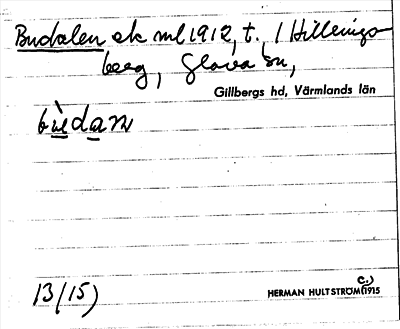 Budalen ek ml 1912, t. 1 Hillerings-
berg, Glava sn,
Gillbergs hd, Värmlands län
13/15)
C.)
HERMAN HULTSTRÖM 1915